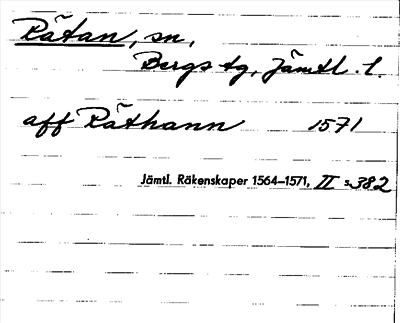 Rätan, sn,
Bergs tg, Jämtl. l.
aff Räthann 1571
Jämtl. Räkenskaper 1564–1571, II s. 382